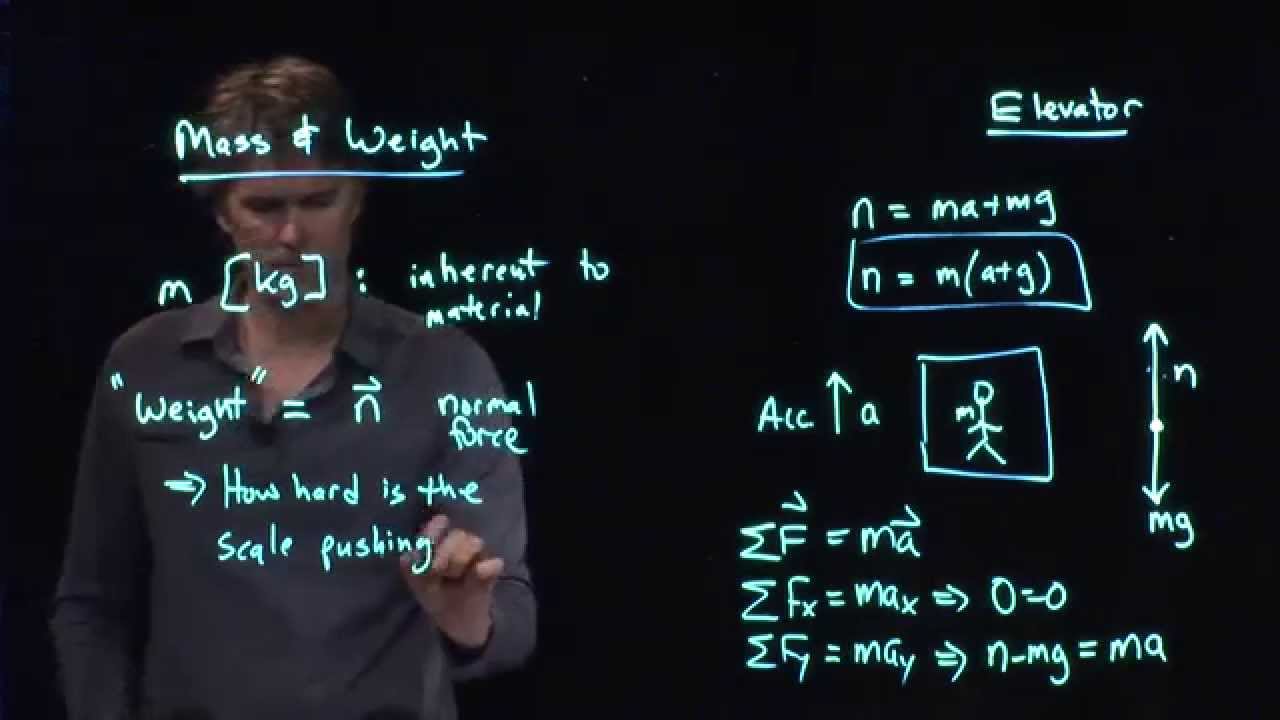 Mass & Weight
m [kg] : inherent to
material
"Weight" = n⃗ normal
force
⇒ How hard is the
scale pushing
Elevator
n = ma+mg
n = m(a+g)
Acc ↑ a
m
n
mg
ΣF⃗ = ma⃗
ΣFx = max ⇒ 0=0
ΣFy = may ⇒ n-mg = ma